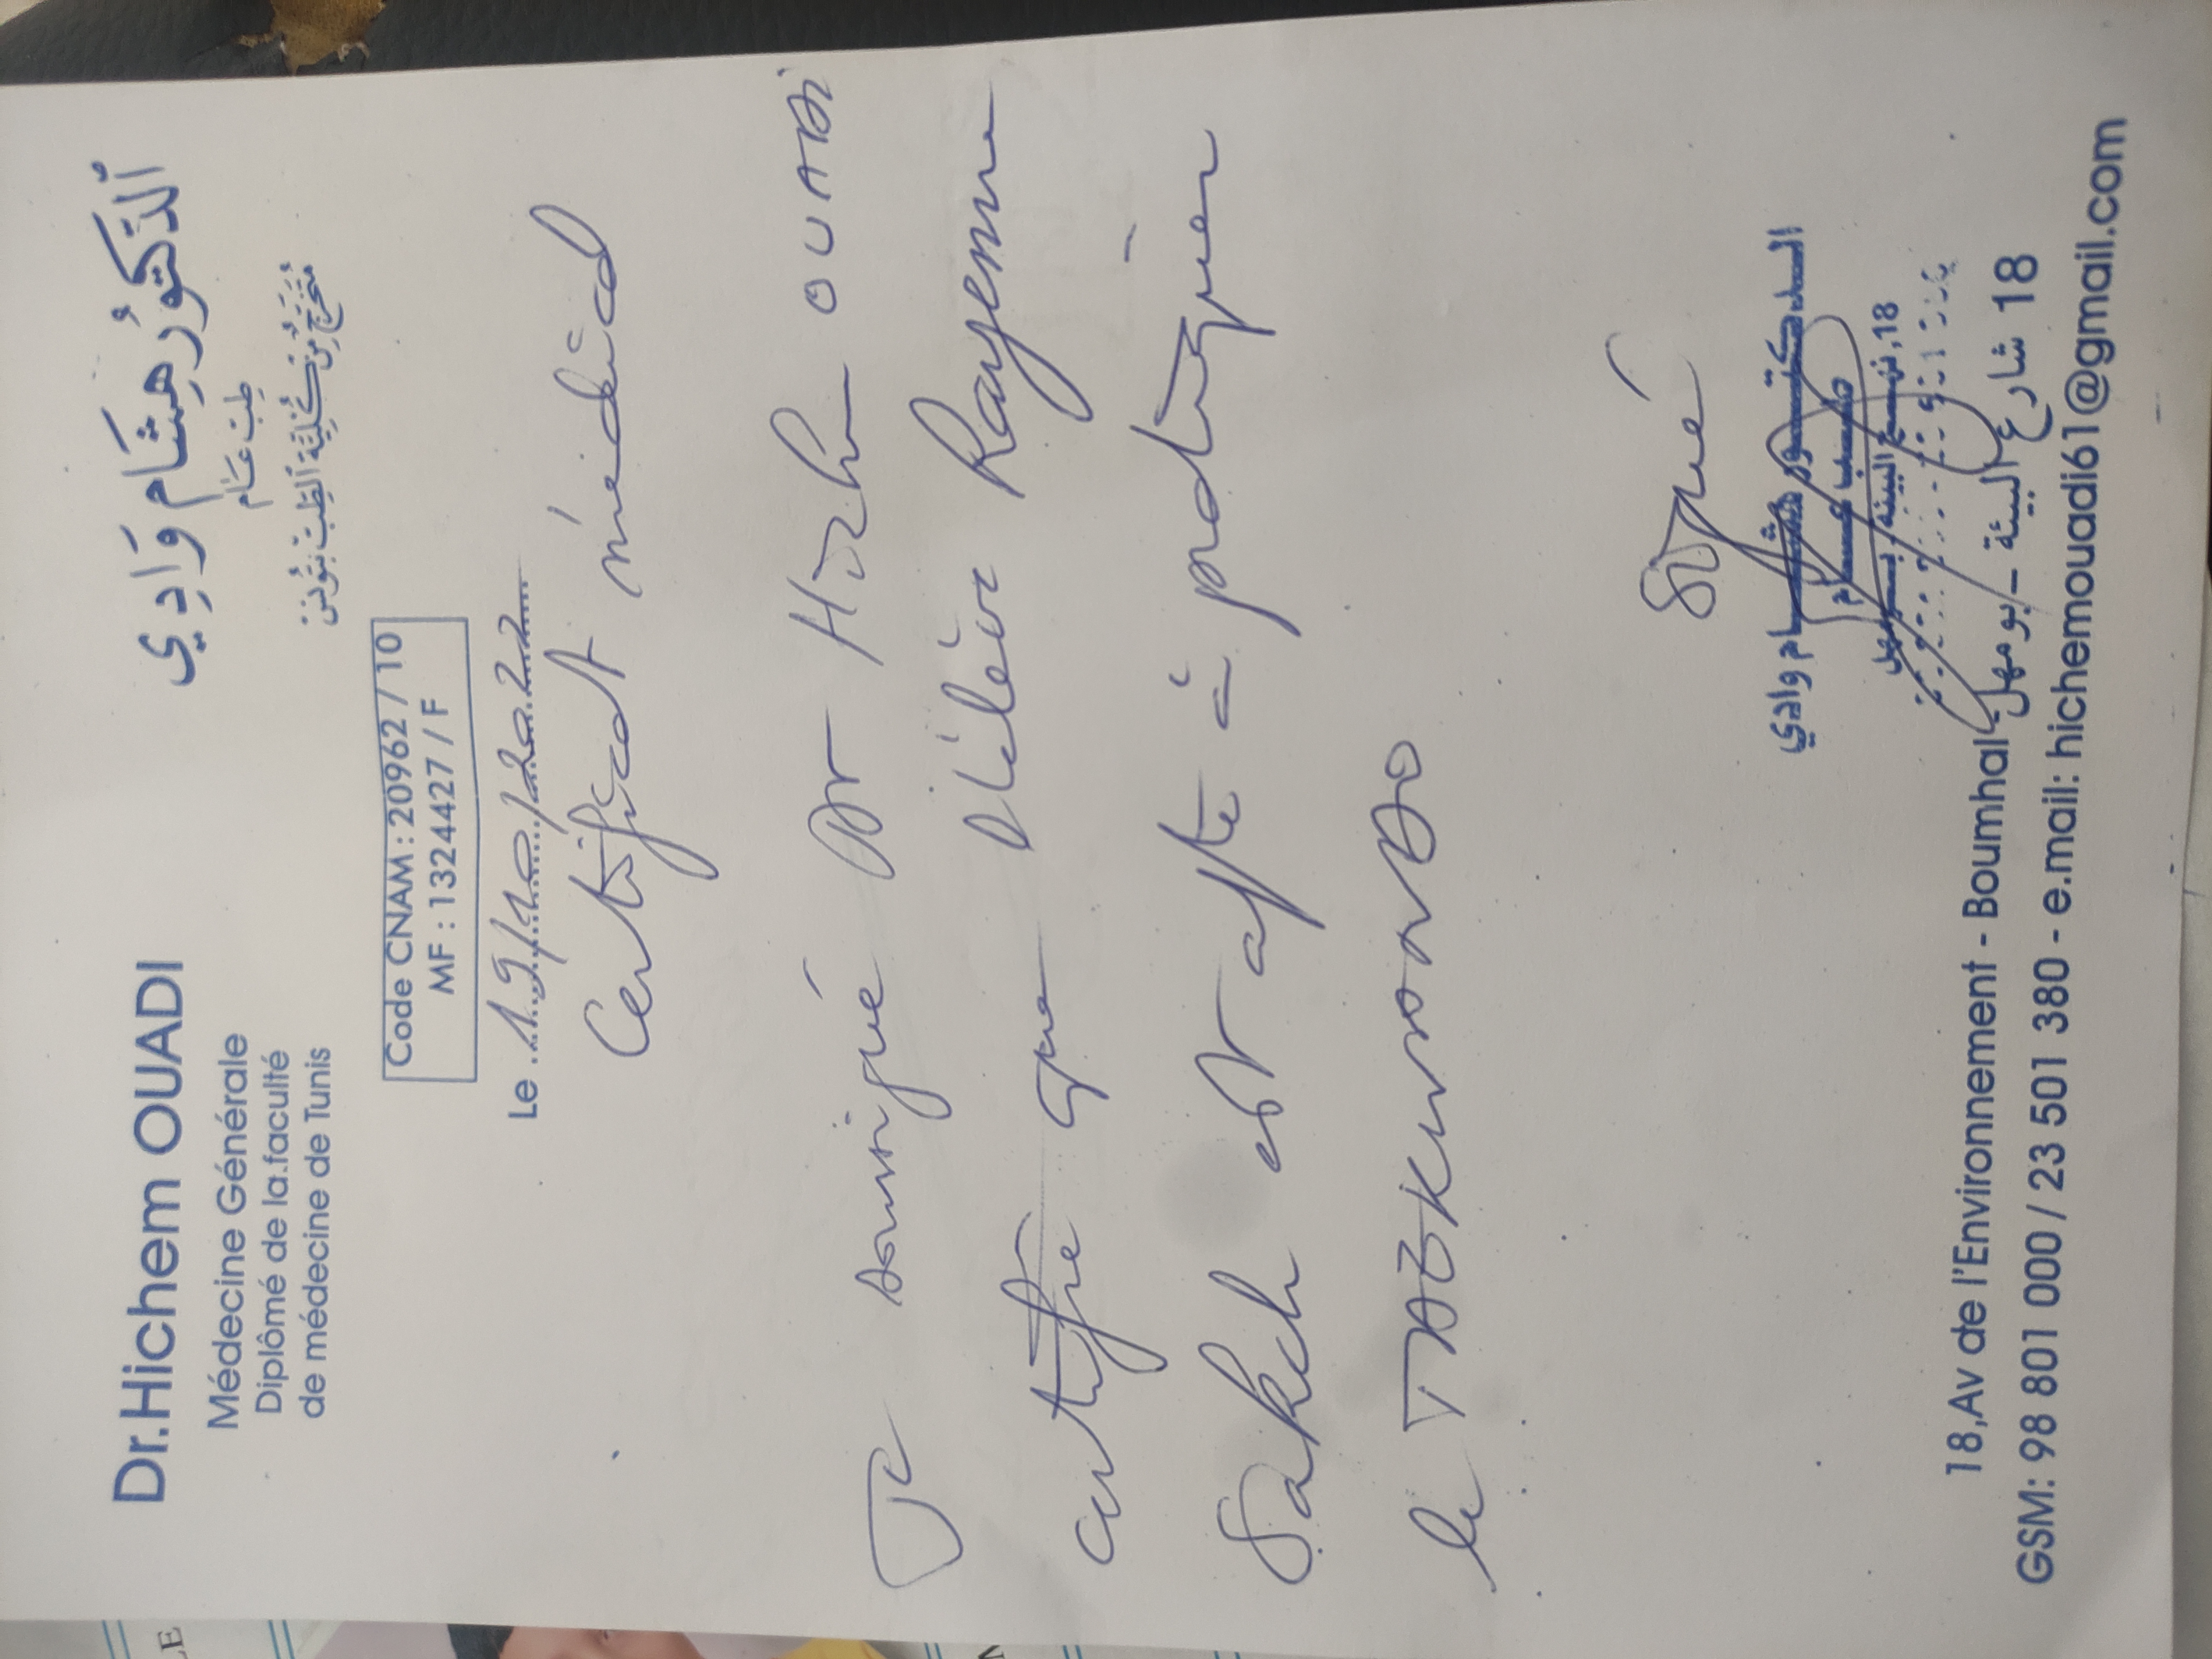 Dr.Hichem OUADI
Médecine Générale
Diplômé de la.faculté
de médecine de Tunis
الدكتور هشام وادي
طب عام
متخرج من كلية الطب بتونس
Code CNAM : 20962 / 10
MF : 1324427 / F
Le 19/10/2022
Certificat médical
Je soussigné Dr Hichem OUADI
certifie que l'élève Rayenne
Sakch est apte à pratiquer
le TAEKWONDO
Signé
الدكتور هشام وادي
طب عام
18,نهج البيئة بومهل
18,Av de l'Environnement - Boumhal - 18 شارع البيئة - بومهل
GSM: 98 801 000 / 23 501 380 - e.mail: hichemouadi61@gmail.com